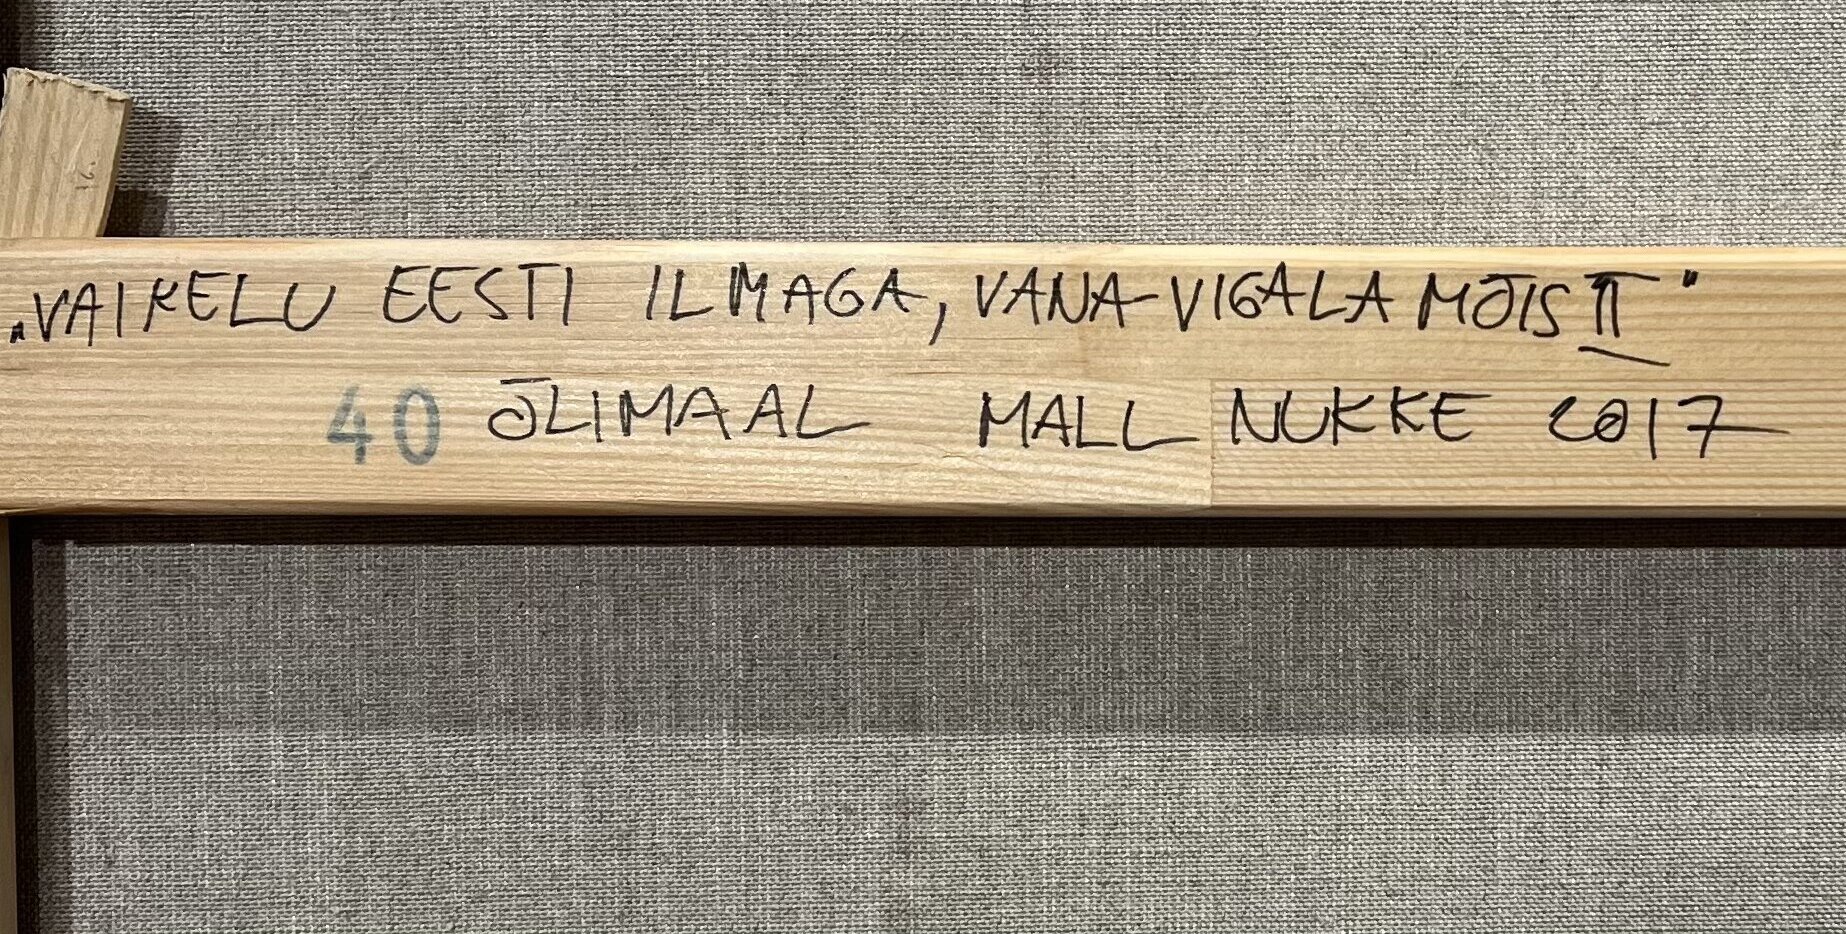 „VAIKELU EESTI ILMAGA, VANA-VIGALA MÕIS II"
40 ÕLIMAAL MALL NUKKE 2017